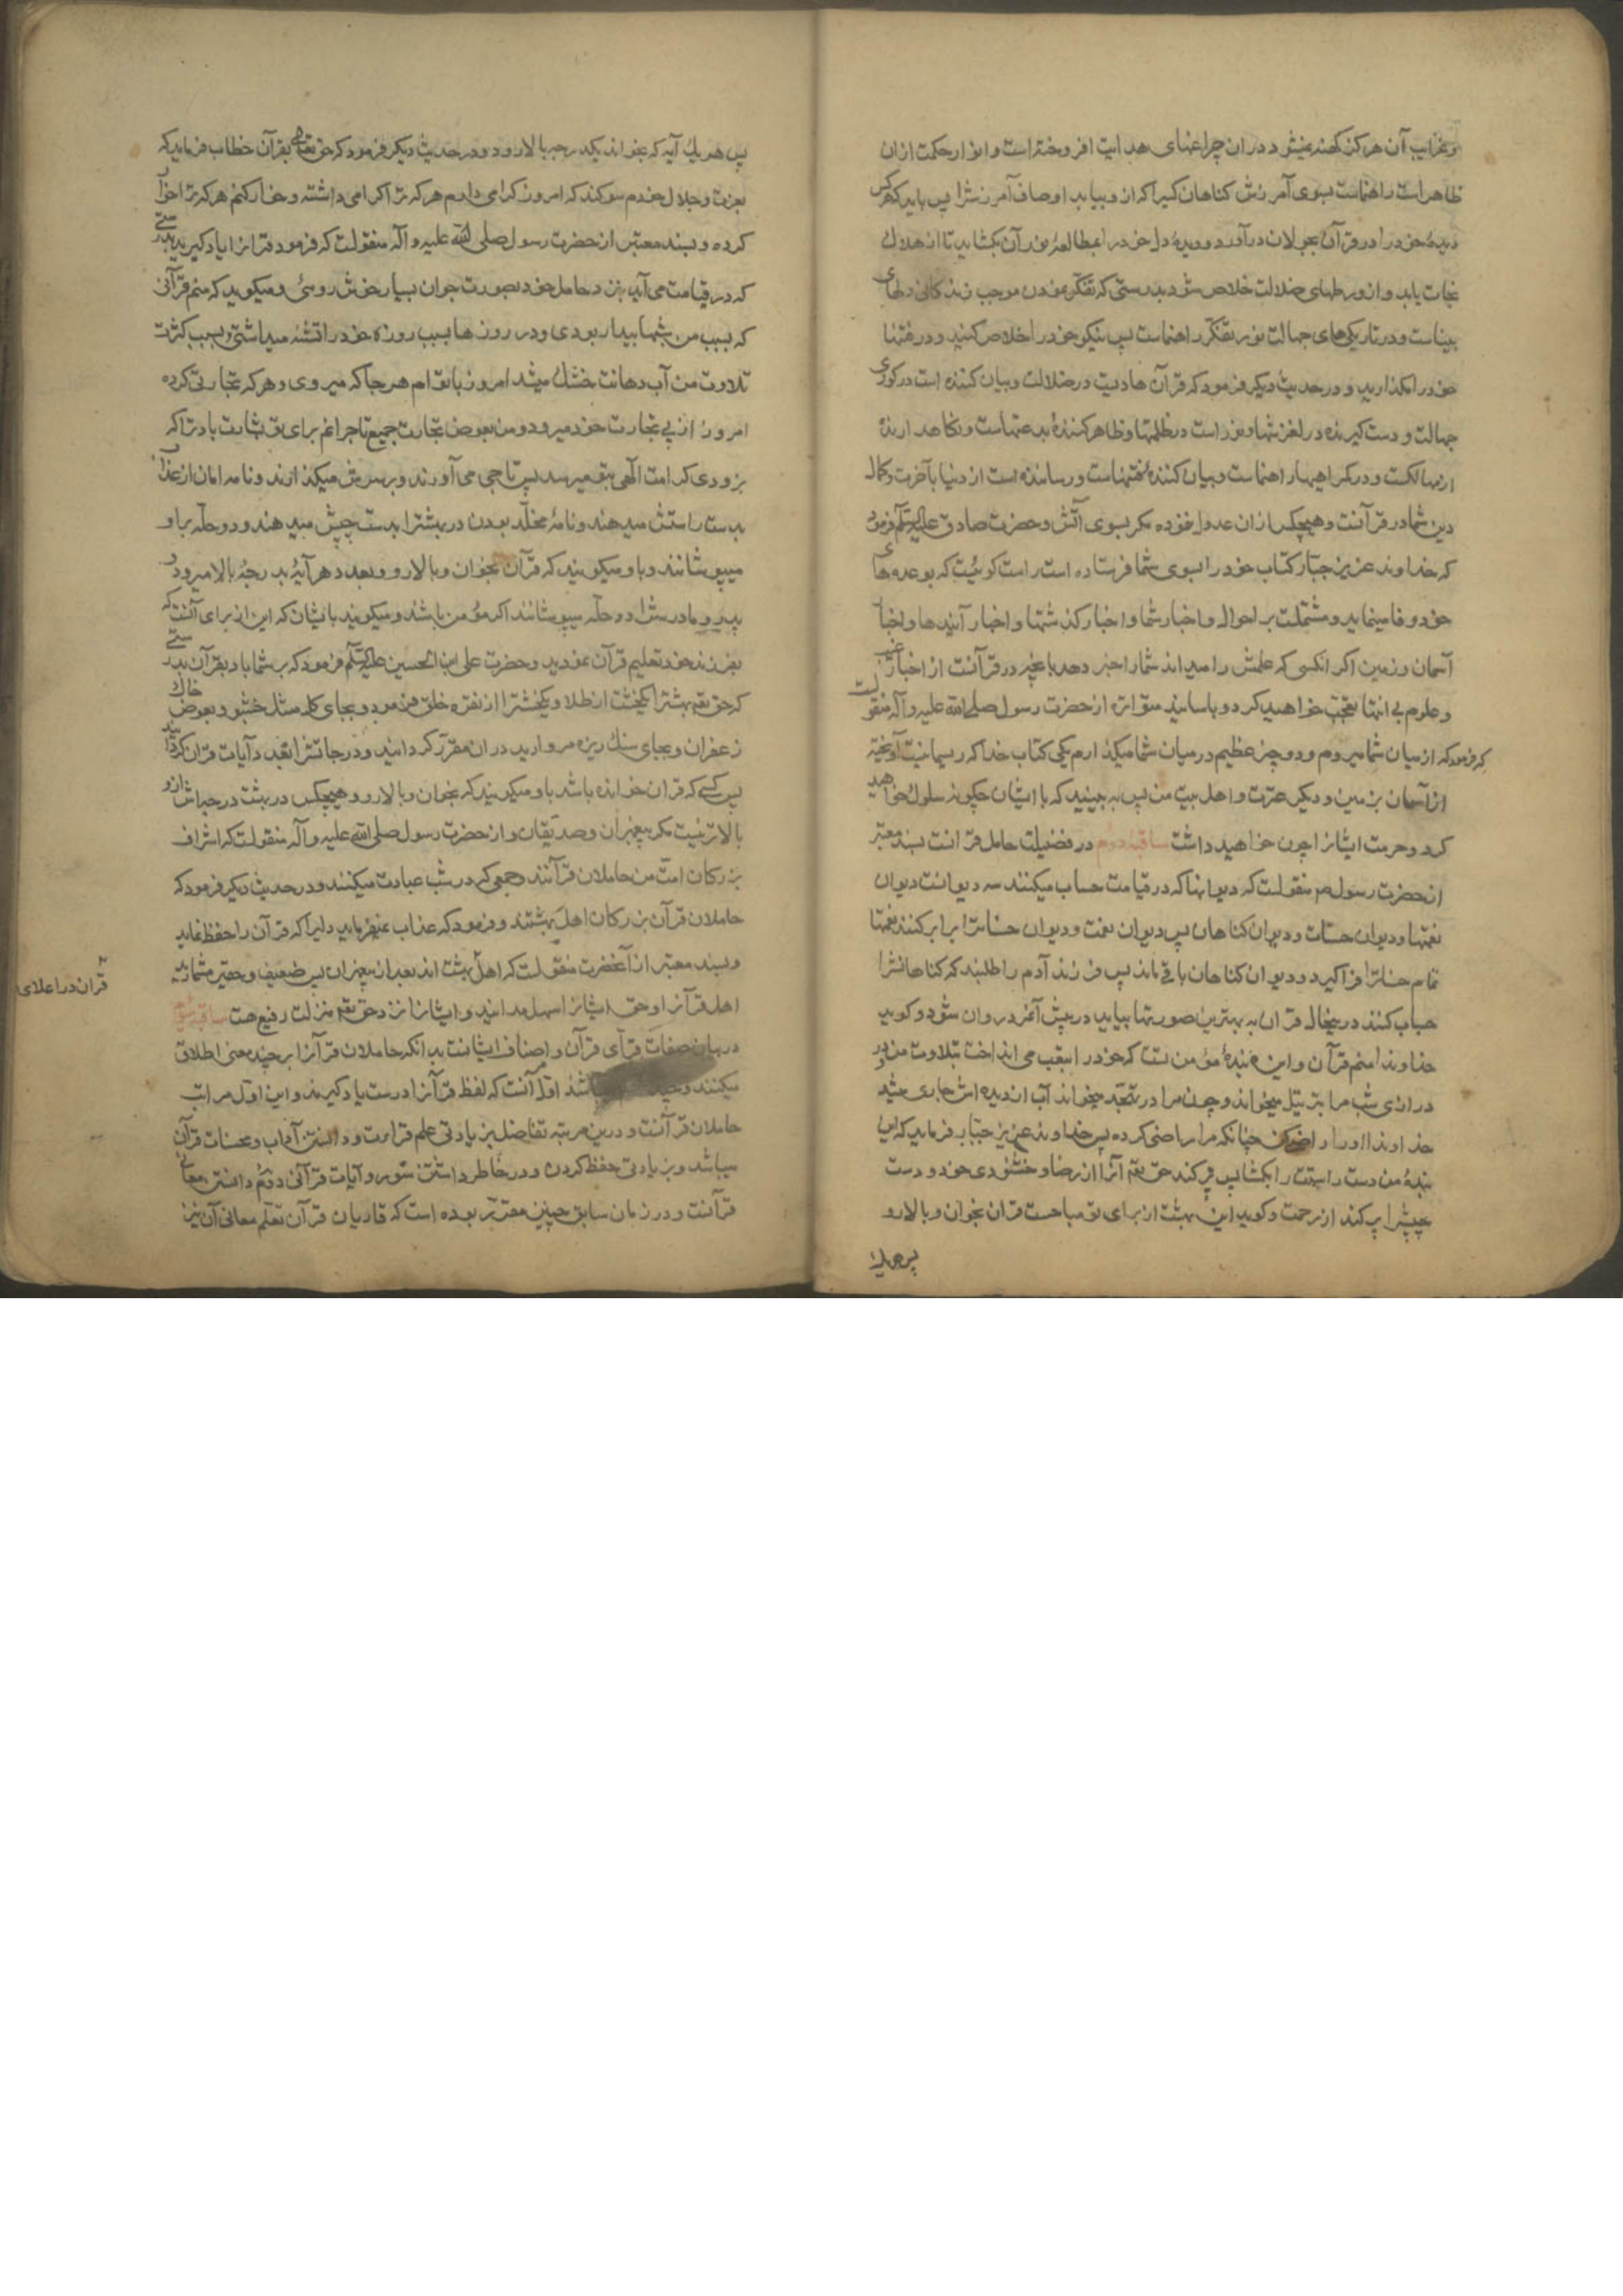 وغرایب آن هرکز کهنه نمیشود در ان چراغهای هدایت افروخته است و انوار حکمت ازان
ظاهر است راهنماست بسوی آمرزش کناهان کسیرا که ازو بیابد اوصاف آمرزشرا پس باید که هرکس
دیدهٔ خود را در قرآن بجولان درآورد و دیدهٔ دل خود را بمطالعهٔ نور آن بکشاید تا از هلاک
نجات یابد و از ورطهای ضلالت خلاص شود بدرستی که تفکر نمودن موجب زندکانی دلهای
بیناست و در تاریکیهای جهالت نور تفکر راهنماست پس نیکو خود را خلاص کنید و در فتنها
خود را مکذارید و در حدیث دیکر فرمود که قرآن هادیست در ضلالت و بیان کننده است در کوری
جهالت و دست کیرنده در لغزشها و نور است در ظلمتها و ظاهر کنندهٔ بدعتهاست و نکاهدارنده
از مهالکست و در کمراهیها راهنماست و بیان کنندهٔ فتنهاست و رساننده است از دنیا بآخرت و کمال
دین شما در قرآنست و هیچکس ازان عدول نمود مکر بسوی آتش و حضرت صادق علیه السلم فرمود
که خداوند عزیز جبار کتاب خود را بسوی شما فرستاده است و راست کوئیست که بوعدهای
خود وفا مینماید و مشتملست بر احوال و اخبار شما و اخبار کذشتها و اخبار آیندها و اخبار
آسمان و زمین اکر انکسی که علمش را میداند شما را خبر دهد بانچه در قرآنست از اخبار غیب
و علوم بی انتها تعجب خواهید کرد و باسانید متواتره از حضرت رسول صلی الله علیه و آله منقولست
که فرمود که از میان شما میروم و دو چیز عظیم در میان شما میکذارم یکی کتاب خدا که ریسمانیست آویخته
از آسمان بزمین و دیکری عترت و اهل بیت من پس به بینید که با ایشان چکونه سلوک خواهید
کرد و حرمت ایشانرا چون خواهید داشت ساقیهٔ دوم در فضیلت حامل قرانست بسند معتبر
از حضرت رسول ص منقولست که دیوانها که در قیامت حساب میکنند سه دیوانست دیوان
نعمتها و دیوان حسنات و دیوان کناهان پس دیوان نعمت و دیوان حسناترا برابر کنند نعمتها
تمام حسناترا فراکیرد و دیوان کناهان باقی ماند پس فرزند آدم را طلبند که کناهانشرا
حساب کنند درینحال قران به بهترین صورتها بیاید در پیش آنمرد روان شود و کوید
خداوندا منم قرآن و این بندهٔ مؤمن تست که خود را بتعب می انداخت بتلاوت من و در
درازی شب مرا بترتیل میخواند و چون مرا در تهجد میخواند آب از دیده اش جاری میشد
خداوندا او را راضی کن چنانکه مرا راضی کرده پس خداوند عزیز جبار فرماید که ای
بندهٔ من دست راستت را بکشا پس پر کند حق تعم آنرا از رضا و خشنودی خود و دست
چپشرا پر کند از رحمت و کوید این بهشت از برای تو مباحست قران بخوان و بالا رو
پس هریک
پس هر یک آیه که بخواند یکدرجه بالا رود و در حدیث دیکر فرمود که حق تعالی بقرآن خطاب فرماید که
بعزت و جلال خودم سوکند که امروز کرامی دارم هر که ترا کرامی داشته و خوار کنم هر که ترا خوار
کرده و بسند معتبر از حضرت رسول صلی الله علیه و آله منقولست که فرمود قرانرا یاد کیرید بدرستی
که در قیامت می آید نزد حامل خود بصورت جوان بسیار خوش روئی و میکوید که منم قرآنی
که بسبب من شبها بیدار بودی و در روزها بسبب روزه خود را تشنه میداشتی و بسبب کثرت
تلاوت من آب دهانت خشک میشد امروز با تو ام هر جا که میروی و هر که تجارتی کرده
امروز از پی تجارت خود میرود و من بعوض تجارت جمیع تاجرانم برای تو بشارت باد ترا که
بزودی کرامت الهی بتو میرسد پس تاجی می آورند و بر سرش میکذارند و نامه امان از عذاب
بدست راستش میدهند و نامهٔ مخلد بودن در بهشترا بدست چپش میدهند و دو حله براو
میپوشانند و باو میکویند که قرآن بخوان و بالا رو و بعدد هر آیهٔ بدرجهٔ بالا میرود و
پدر و مادرشرا دو حله میپوشانند اکر مؤمن باشند و میکویند بایشان که این از برای آنست که
بفرزند خود تعلیم قرآن نمودید و حضرت علی ابن الحسین علیه السلم فرمود که بر شما باد بقرآن بدرستی
که حق تعم بهشترا یکخشت از طلا و یکخشترا از نقره خلق فرمود و بجای کل مشک خشبو و بعوض خاک
زعفران و بجای سنک ریزه مروارید دران مقرر کردانید و درجاتشرا بعدد آیات قران کردانید
پس کسی که قران خوانده باشد باو میکویند که بخوان و بالا رو و هیچکس در بهشت درجه‌اش ازو
بالاتر نیست مکر پیغمبران و صدیقان و از حضرت رسول صلی الله علیه و آله منقولست که اشراف
بزرکان امت من حاملان قرآنند و جمعی که در شب عبادت میکنند و در حدیث دیکر فرمود که
حاملان قرآن بزرکان اهل بهشتند و فرمود که عذاب نمیفرماید دلیرا که قرآن را حفظ نماید
و بسند معتبر از آنحضرت منقولست که اهل قران در اعلای بهشت اند بعد از پیغمبران پس ضعیف و حقیر مشمارید
اهل قرآنرا و حق ایشانرا سهل مدانید و ایشانرا نزد حق تعم منزلت رفیع هست ساقیهٔ سوم
در بیان صفات قرای قرآن و اصناف ایشانست بدانکه حاملان قرآنرا بر چند معنی اطلاق
میکنند و باشد اول آنست که لفظ قرآنرا درست یاد کیرند و این اول مراتب
حاملان قرآنست و درین مرتبه تفاضل بزیادتی علم قراءت و دانستن آداب و محسنات قرآن
میباشد و بزیادتی حفظ کردن و در خاطر داشتن سور و آیات قرآنی دوم دانستن معانی
قرآنست و در زمان سابق چنین مقرر بوده است که قاریان قرآن تعلم معانی آن نیز
قران در اعلای